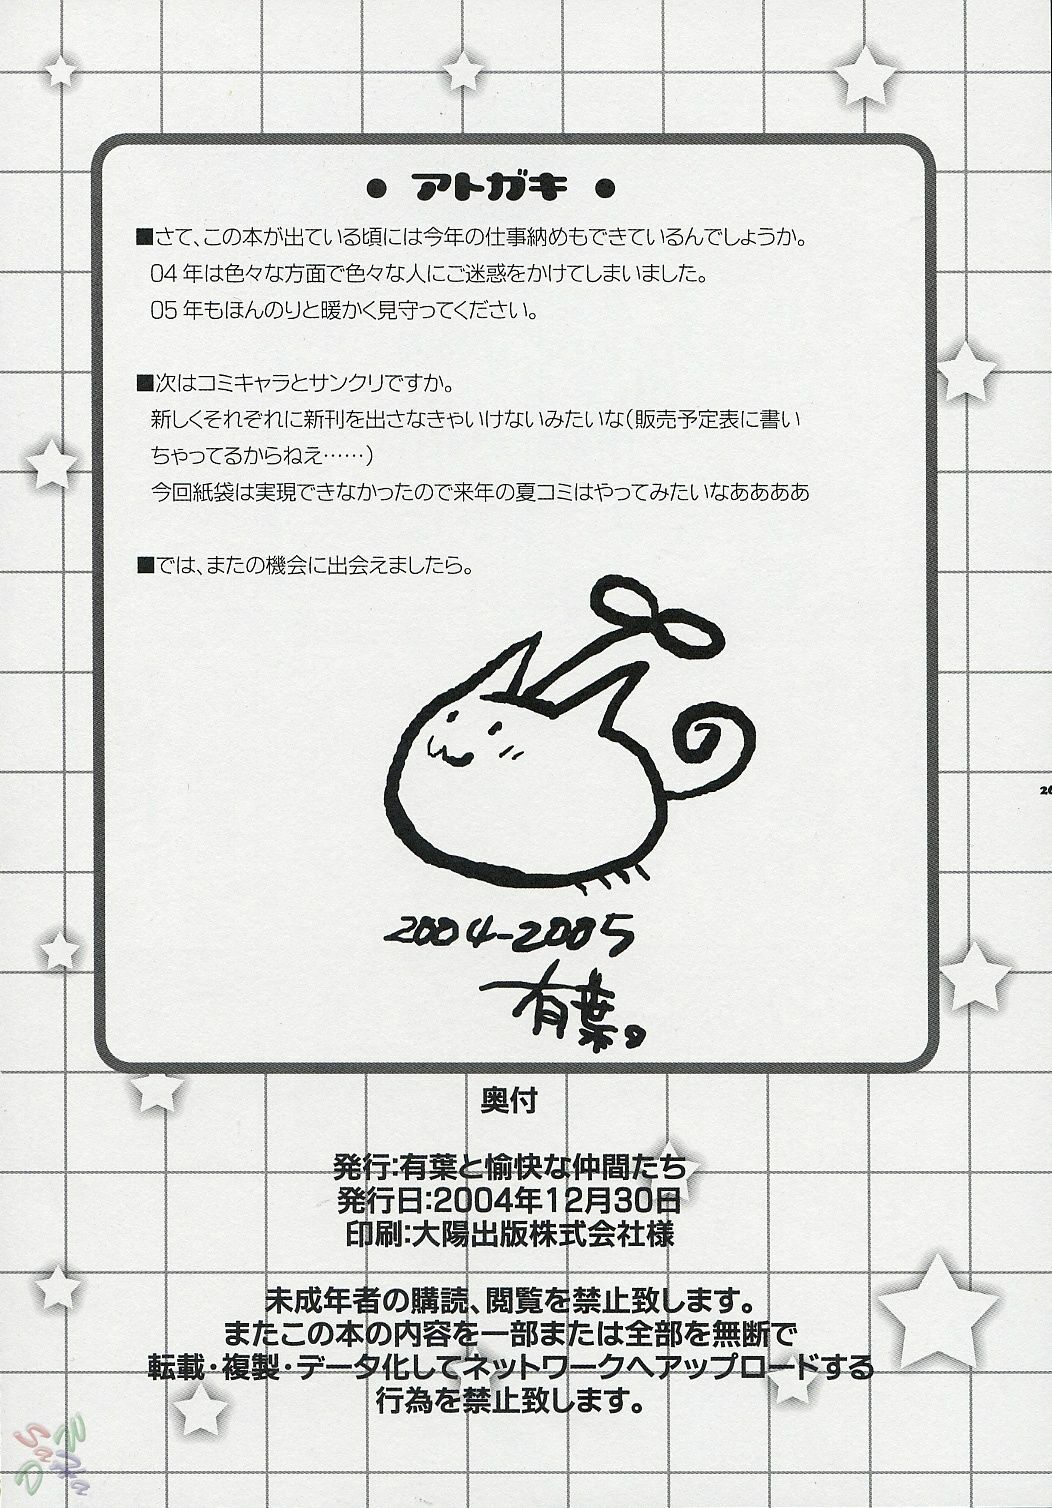 ● アトガキ ●
■さて、この本が出ている頃には今年の仕事納めもできているんでしょうか。
04年は色々な方面で色々な人にご迷惑をかけてしまいました。
05年もほんのりと暖かく見守ってください。
■次はコミキャラとサンクリですか。
新しくそれぞれに新刊を出さなきゃいけないみたいな（販売予定表に書い
ちゃってるからねえ……）
今回紙袋は実現できなかったので来年の夏コミはやってみたいなああああ
■では、またの機会に出会えましたら。
26
2004-2005
有葉
奥付
発行:有葉と愉快な仲間たち
発行日:2004年12月30日
印刷:大陽出版株式会社様
未成年者の購読、閲覧を禁止致します。
またこの本の内容を一部または全部を無断で
転載・複製・データ化してネットワークへアップロードする
行為を禁止致します。